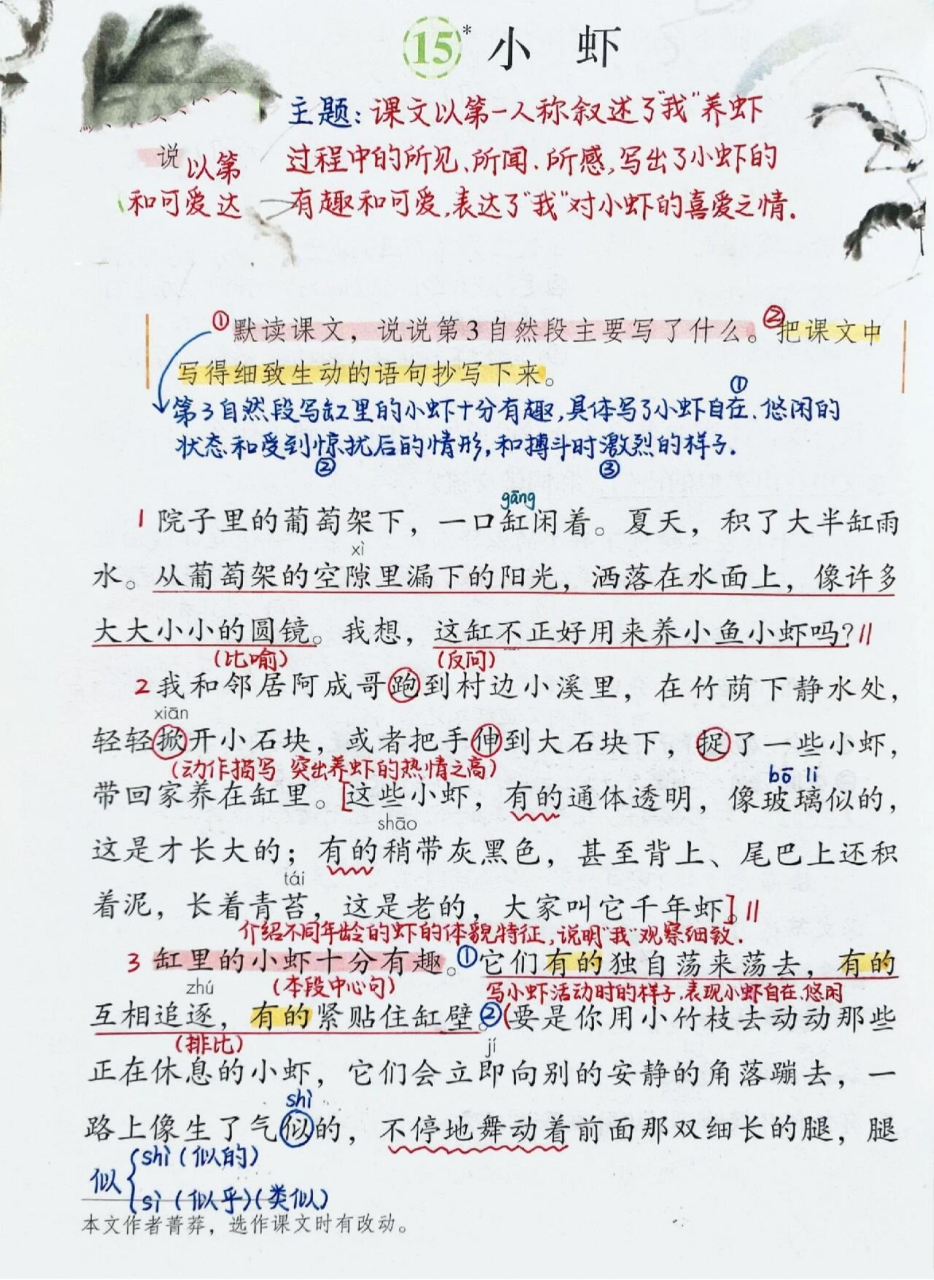 15* 小虾
主题:课文以第一人称叙述了"我"养虾
说 以第 过程中的所见、所闻、所感,写出了小虾的
和可爱 达 有趣和可爱,表达了"我"对小虾的喜爱之情.
①默读课文,说说第3自然段主要写了什么。②把课文中
写得细致生动的语句抄写下来。
①
第3自然段写缸里的小虾十分有趣,具体写了小虾自在、悠闲的
状态和受到惊扰后的情形,和搏斗时激烈的样子.
② ③
gāng
1 院子里的葡萄架下,一口缸闲着。夏天,积了大半缸雨
xì
水。从葡萄架的空隙里漏下的阳光,洒落在水面上,像许多
大大小小的圆镜。我想,这缸不正好用来养小鱼小虾吗?||
(比喻) (反问)
2 我和邻居阿成哥跑到村边小溪里,在竹荫下静水处,
xiān
轻轻掀开小石块,或者把手伸到大石块下,捉了一些小虾,
(动作描写 突出养虾的热情之高) bō li
带回家养在缸里。[这些小虾,有的通体透明,像玻璃似的,
shāo
这是才长大的;有的稍带灰黑色,甚至背上、尾巴上还积
tái
着泥,长着青苔,这是老的,大家叫它千年虾]。||
介绍不同年龄的虾的体貌特征,说明"我"观察细致.
3 缸里的小虾十分有趣。①它们有的独自荡来荡去,有的
zhú (本段中心句) 写小虾活动时的样子.表现小虾自在、悠闲
互相追逐,有的紧贴住缸壁。②(要是你用小竹枝去动动那些
(排比) jí
正在休息的小虾,它们会立即向别的安静的角落蹦去,一
shì
路上像生了气似的,不停地舞动着前面那双细长的腿,腿
似{shì(似的)
sì(似乎)(类似)
本文作者菁莽,选作课文时有改动。